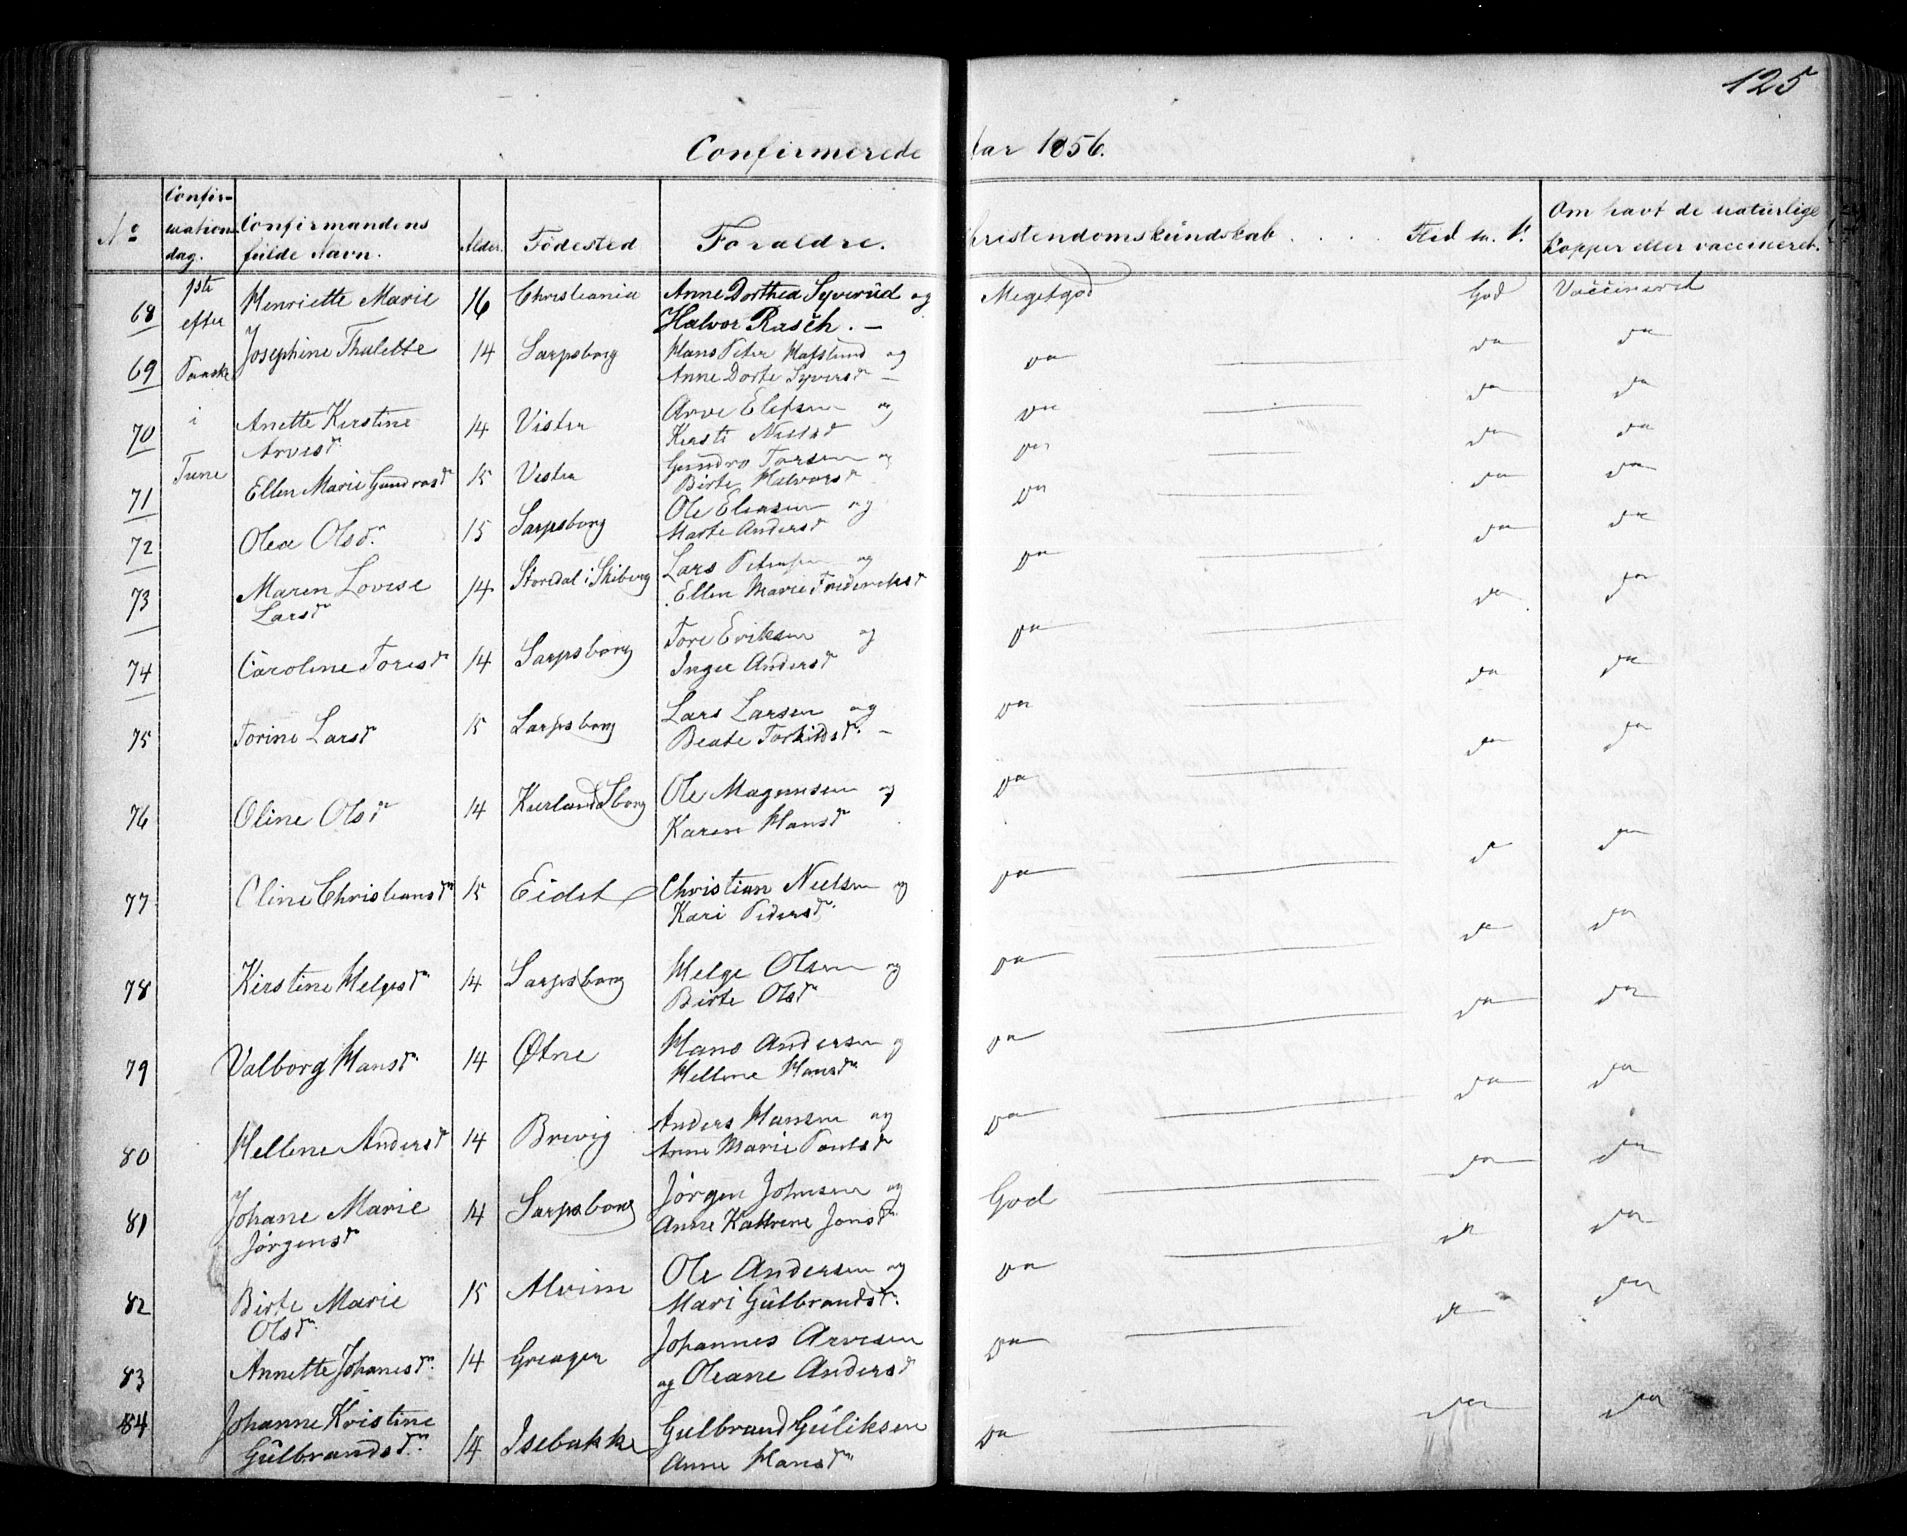 125
Confirmerede Aar 1856.
No Confirmationsdag. Confirmandens fulde Navn. Alder. Födested Foraldre. Christendomskundskab. . . . . Flid m. V. Om havt de naturlige Kopper eller vaccineret.
68 1ste efter Henriette Marie 16 Christiania Anne Dorthea Syverüd og Meget god God Vaccinered
Halvor Rasch. —
69 Paaske Josephine Thalette 14 Sarpsborg Hans Peter Hafslund og Do — Do Do
Anne Dorte Syversdr —
70 i Anette Kirstine 14 Vister Arve Elefsen og Do — Do Do
Arvesdr Kersti Nilsdr
71 Tune Ellen Marie Gundrosdr 15 Vister Gundro Torsen og Do — Do Do
Birte Halvorsdr
72 Olea Olsdr 15 Sarpsborg Ole Eliasen og Do — Do Do
Marte Andersdr
73 Maren Lovise 14 Storedal i Skiberg Lars Petersen og Do — Do Do
Larsdr Ellen Marie Fredereksdr
74 Caroline Toresdr 14 Sarpsborg Tore Eriksen og Do — Do Do
Inger Andersdr
75 Torine Larsdr 15 Sarpsborg Lars Larsen og Do — Do Do
Beate Torkildsdr. —
76 Oline Olsdr 14 Kurland Sborg Ole Magnussen og Do — Do Do
Karen Hansdr
77 Oline Christiansdr 15 Eidet Christian Nielsen og Do — Do Do
Kari Pedersdr
78 Kirstine Helgesdr 14 Sarpsborg Helge Olsen og Do — Do Do
Birte Olsdr
79 Valborg Hansdr 14 Øtne Hans Andersen og Do — Do Do
Hellene Hansdr
80 Hellene Andersdr 14 Brevig Anders Hansen og Do — Do Do
Anne Marie Poulsdr
81 Johane Marie 14 Sarpsborg Jörgen Johnsen og God — Do Do
Jørgensdr Anne Kathrine Jonsdr
82 Birte Marie 15 Alvim Ole Andersen og Do — Do Do
Olsdr Mari Gülbrandsdr.
83 Annette Johanesdr. 14 Greager Johannes Arvesen Do — Do Do
og Oleane Andersdr
84 Johanne Kristine 14 Isebakke Gulbrand Güliksen Do — Do Do
Gülbrandsdr. Anne Hansdr